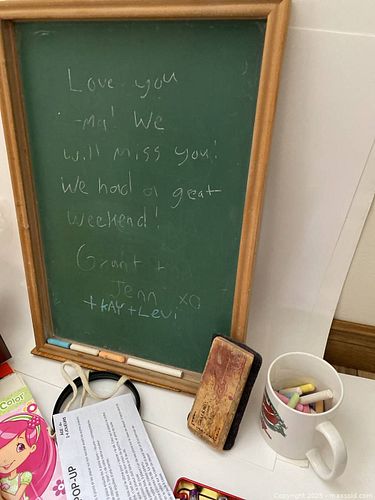 Love you
-ma! We
will miss you!
We had a great
weekend!
Grant +
Jenn xo
+ KAY + Levi
Color
POP-UP
Copyright 2025 - maxsold.com